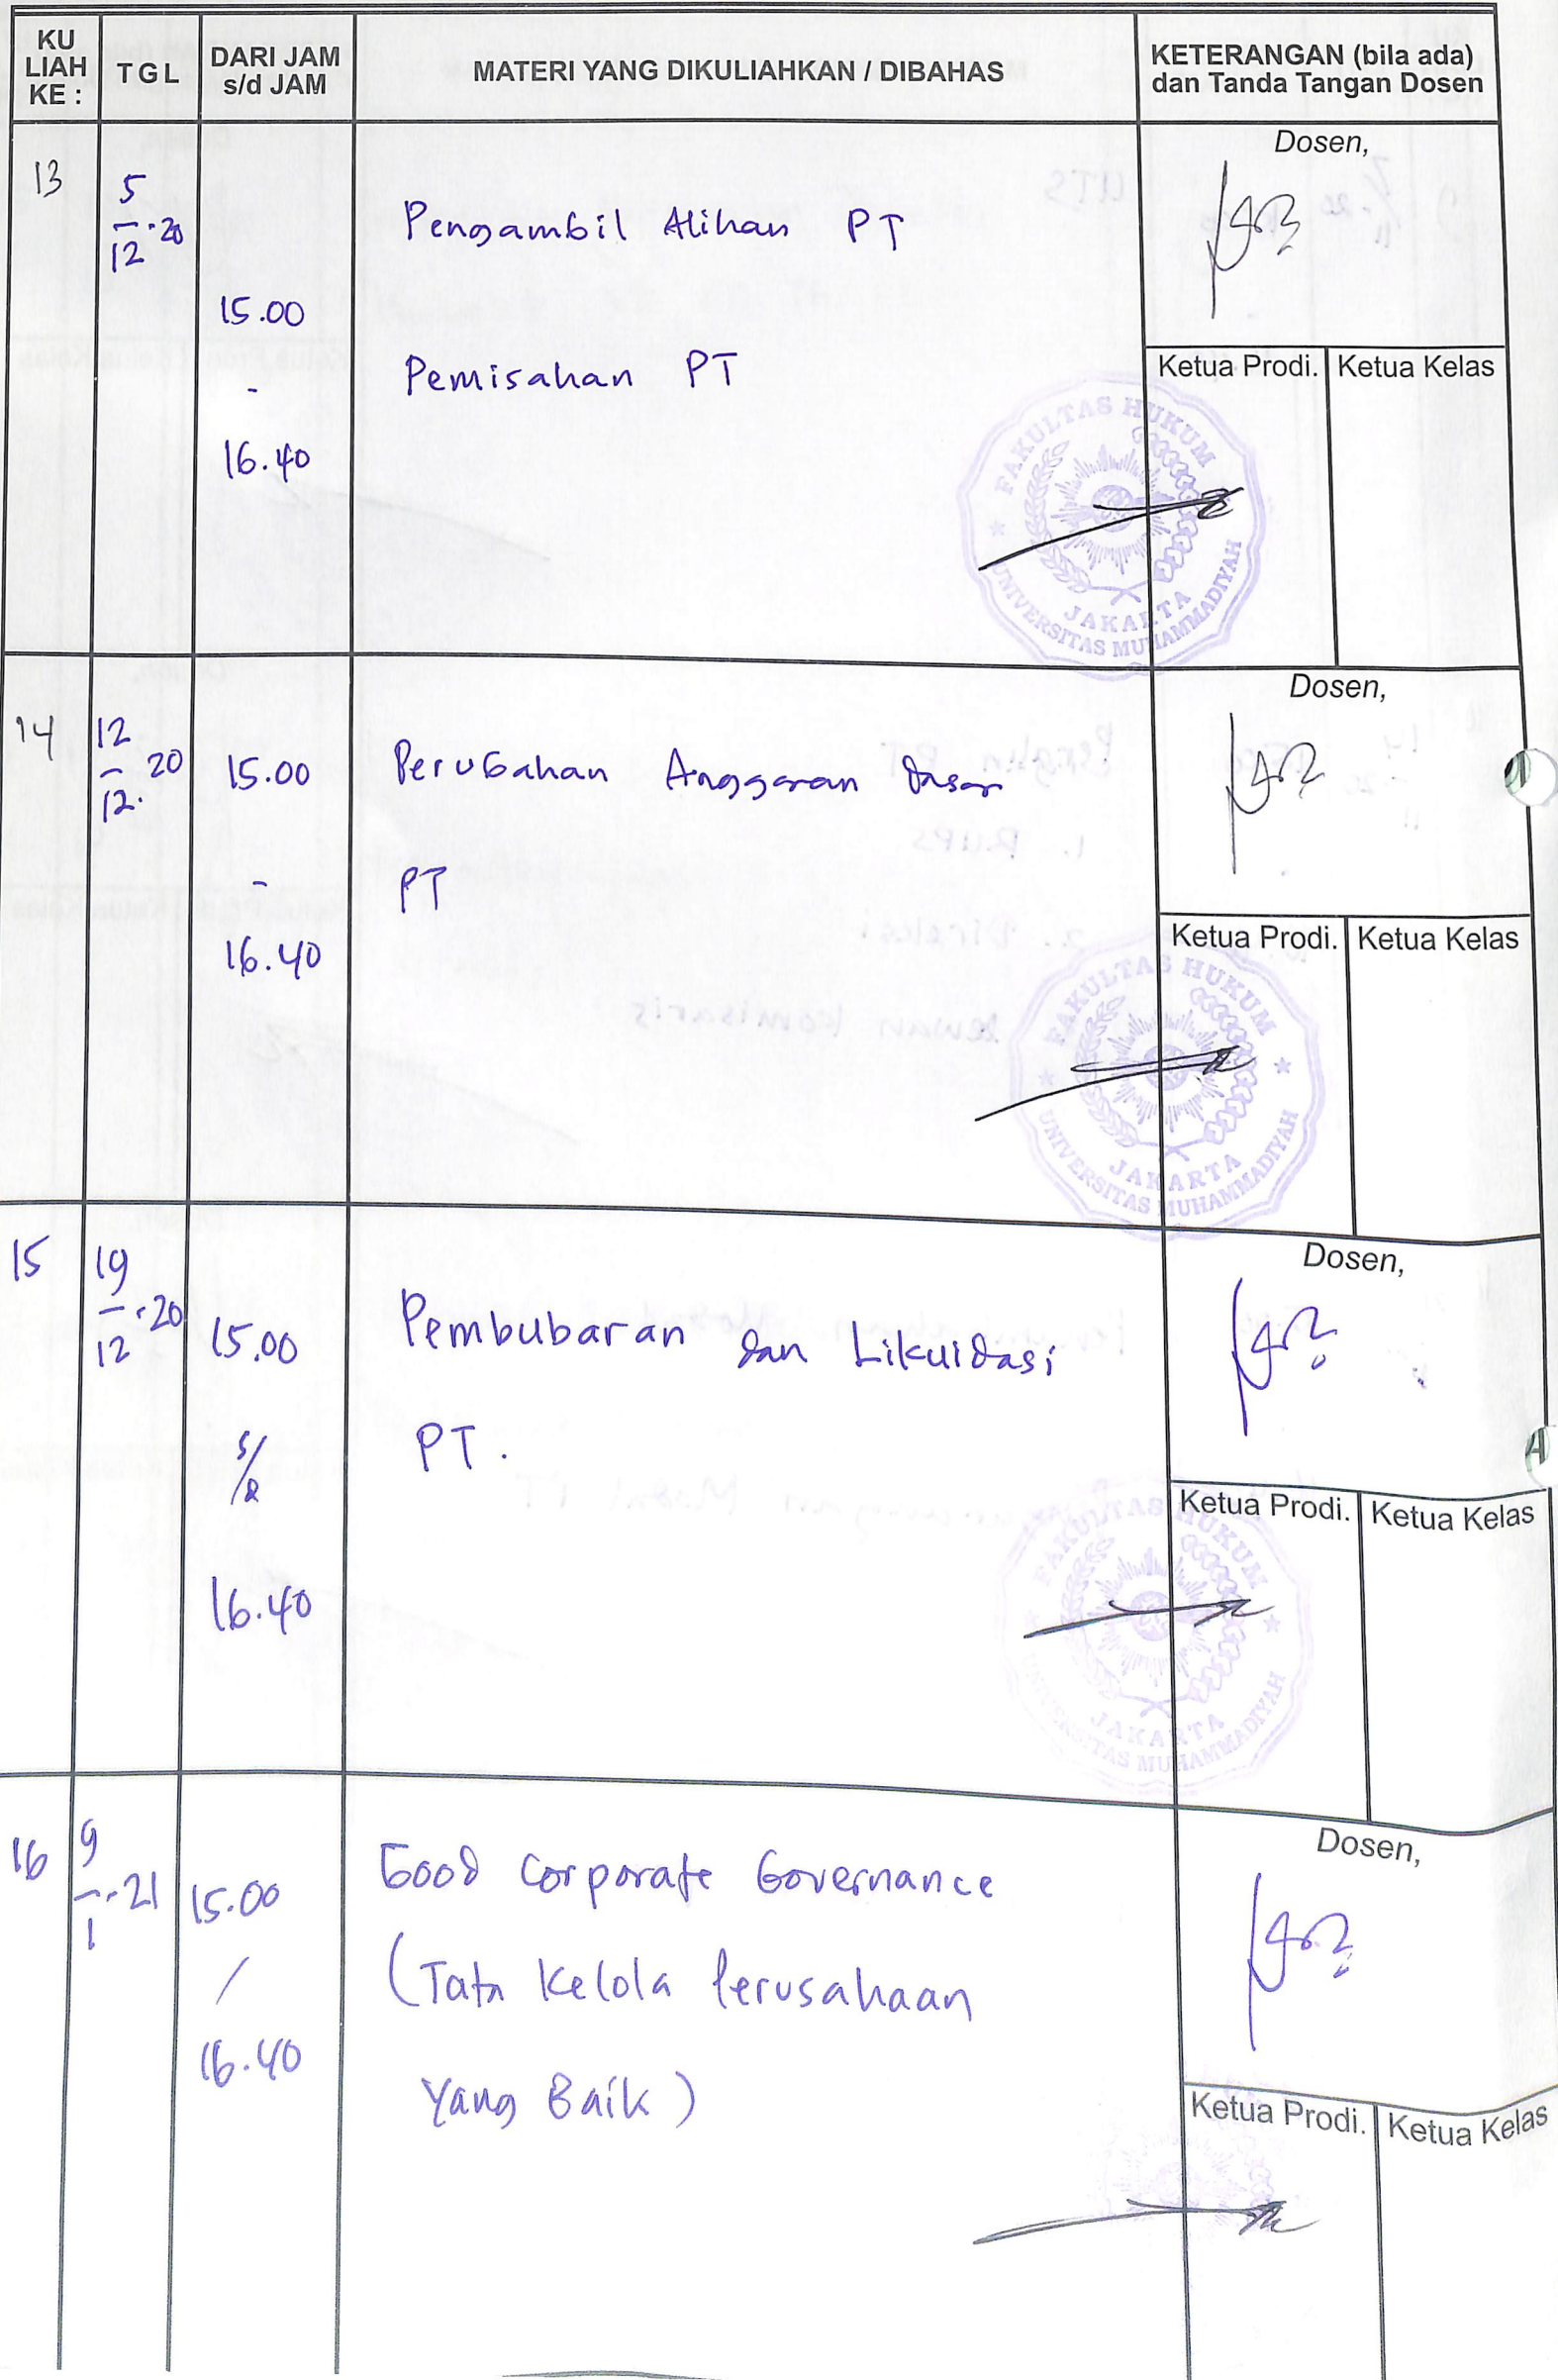 KU
LIAH
KE :
TGL
DARI JAM
s/d JAM
MATERI YANG DIKULIAHKAN / DIBAHAS
KETERANGAN (bila ada)
dan Tanda Tangan Dosen
13
5
12 · 20
15.00
-
16.40
Pengambil Alihan PT
Pemisahan PT
Dosen,
Ketua Prodi. Ketua Kelas
FAKULTAS HUKUM
JAKARTA
UNIVERSITAS MUHAMMADIYAH
14
12
12. 20
15.00
-
16.40
Perubahan Anggaran Dasar
PT
Dosen,
Ketua Prodi. Ketua Kelas
FAKULTAS HUKUM
JAKARTA
UNIVERSITAS MUHAMMADIYAH
15
19
12 · 20
15.00
s/d
16.40
Pembubaran dan Likuidasi
PT.
Dosen,
Ketua Prodi. Ketua Kelas
FAKULTAS HUKUM
JAKARTA
UNIVERSITAS MUHAMMADIYAH
16
9
1 · 21
15.00
/
16.40
Good Corporate Governance
(Tata Kelola Perusahaan
Yang Baik)
Dosen,
Ketua Prodi. Ketua Kelas